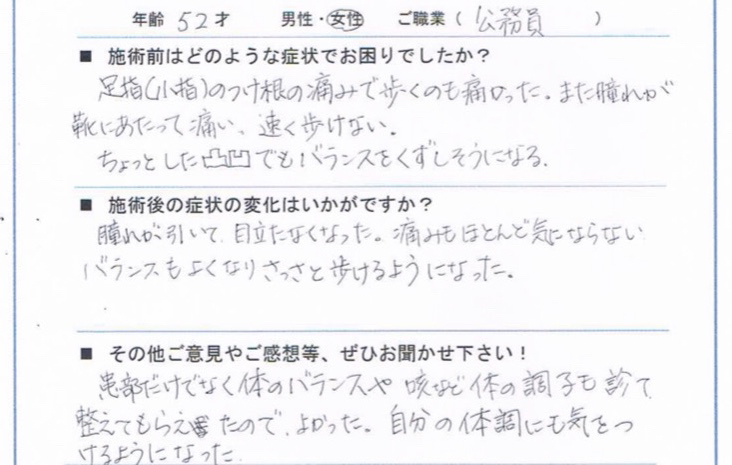 年齢 52 才 男性・女性 ご職業（公務員）
■ 施術前はどのような症状でお困りでしたか？
足指(小指)のつけ根の痛みで歩くのも痛かった。また腫れが
靴にあたって痛い、速く歩けない。
ちょっとした凸凹でもバランスをくずしそうになる。
■ 施術後の症状の変化はいかがですか？
腫れが引いて、目立たなくなった。痛みもほとんど気にならない
バランスもよくなりさっさと歩けるようになった。
■ その他ご意見やご感想等、ぜひお聞かせ下さい！
患部だけでなく体のバランスや 咳など体の調子も診て
整えてもらえたので、よかった。自分の体調にも気をつ
けるようになった。